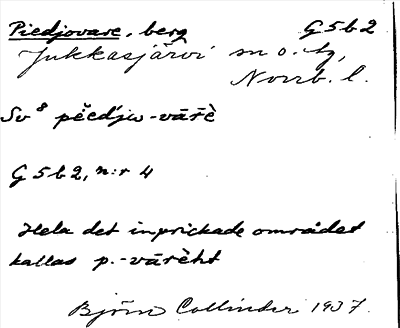 Piedjovare, berg G 5 b 2
Jukkasjärvi sn o. tg,
Norrb. l.
Sv⁸ pěed́jụɷ-vāřè
G 5 b 2, n:r 4
Hela det inprickade området
kallas p.-vārèht
Björn Collinder 1937.